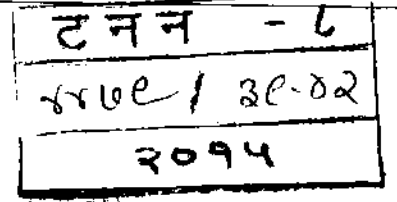 ट न न - ८
४४७९ / ३९-४२
२०१५